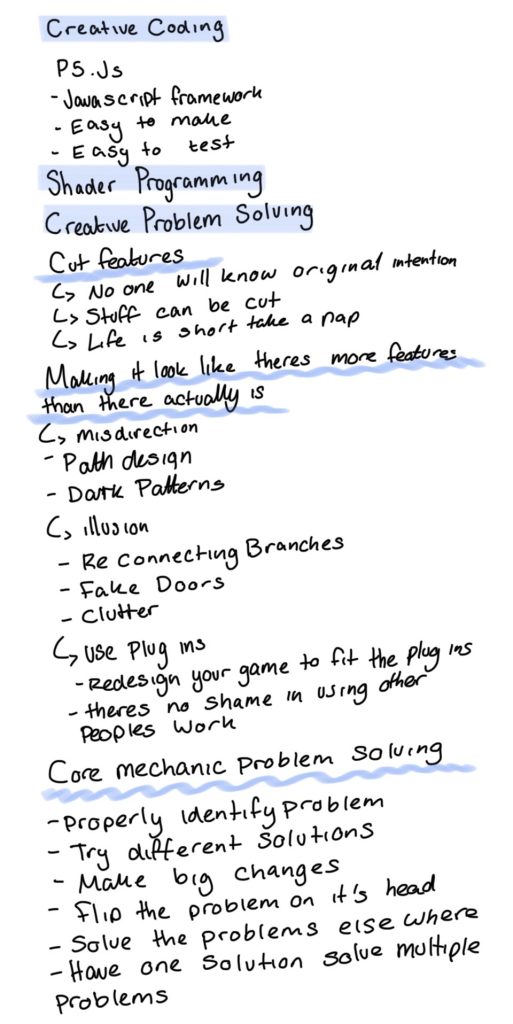 Creative Coding
P5.Js
- Javascript framework
- Easy to make
- Easy to test
Shader Programming
Creative Problem Solving
Cut features
↳ No one will know original intention
↳ Stuff can be cut
↳ Life is short take a nap
Making it look like theres more features
than there actually is
↳ misdirection
- Path design
- Dark Patterns
↳ illusion
- Re connecting Branches
- Fake Doors
- Clutter
↳ Use Plug ins
- Redesign your game to fit the plug ins
- theres no shame in using other
Peoples work
Core mechanic problem Solving
- Properly identify problem
- Try different solutions
- Make big changes
- Flip the problem on it's head
- Solve the problems else where
- Have one solution solve multiple
problems